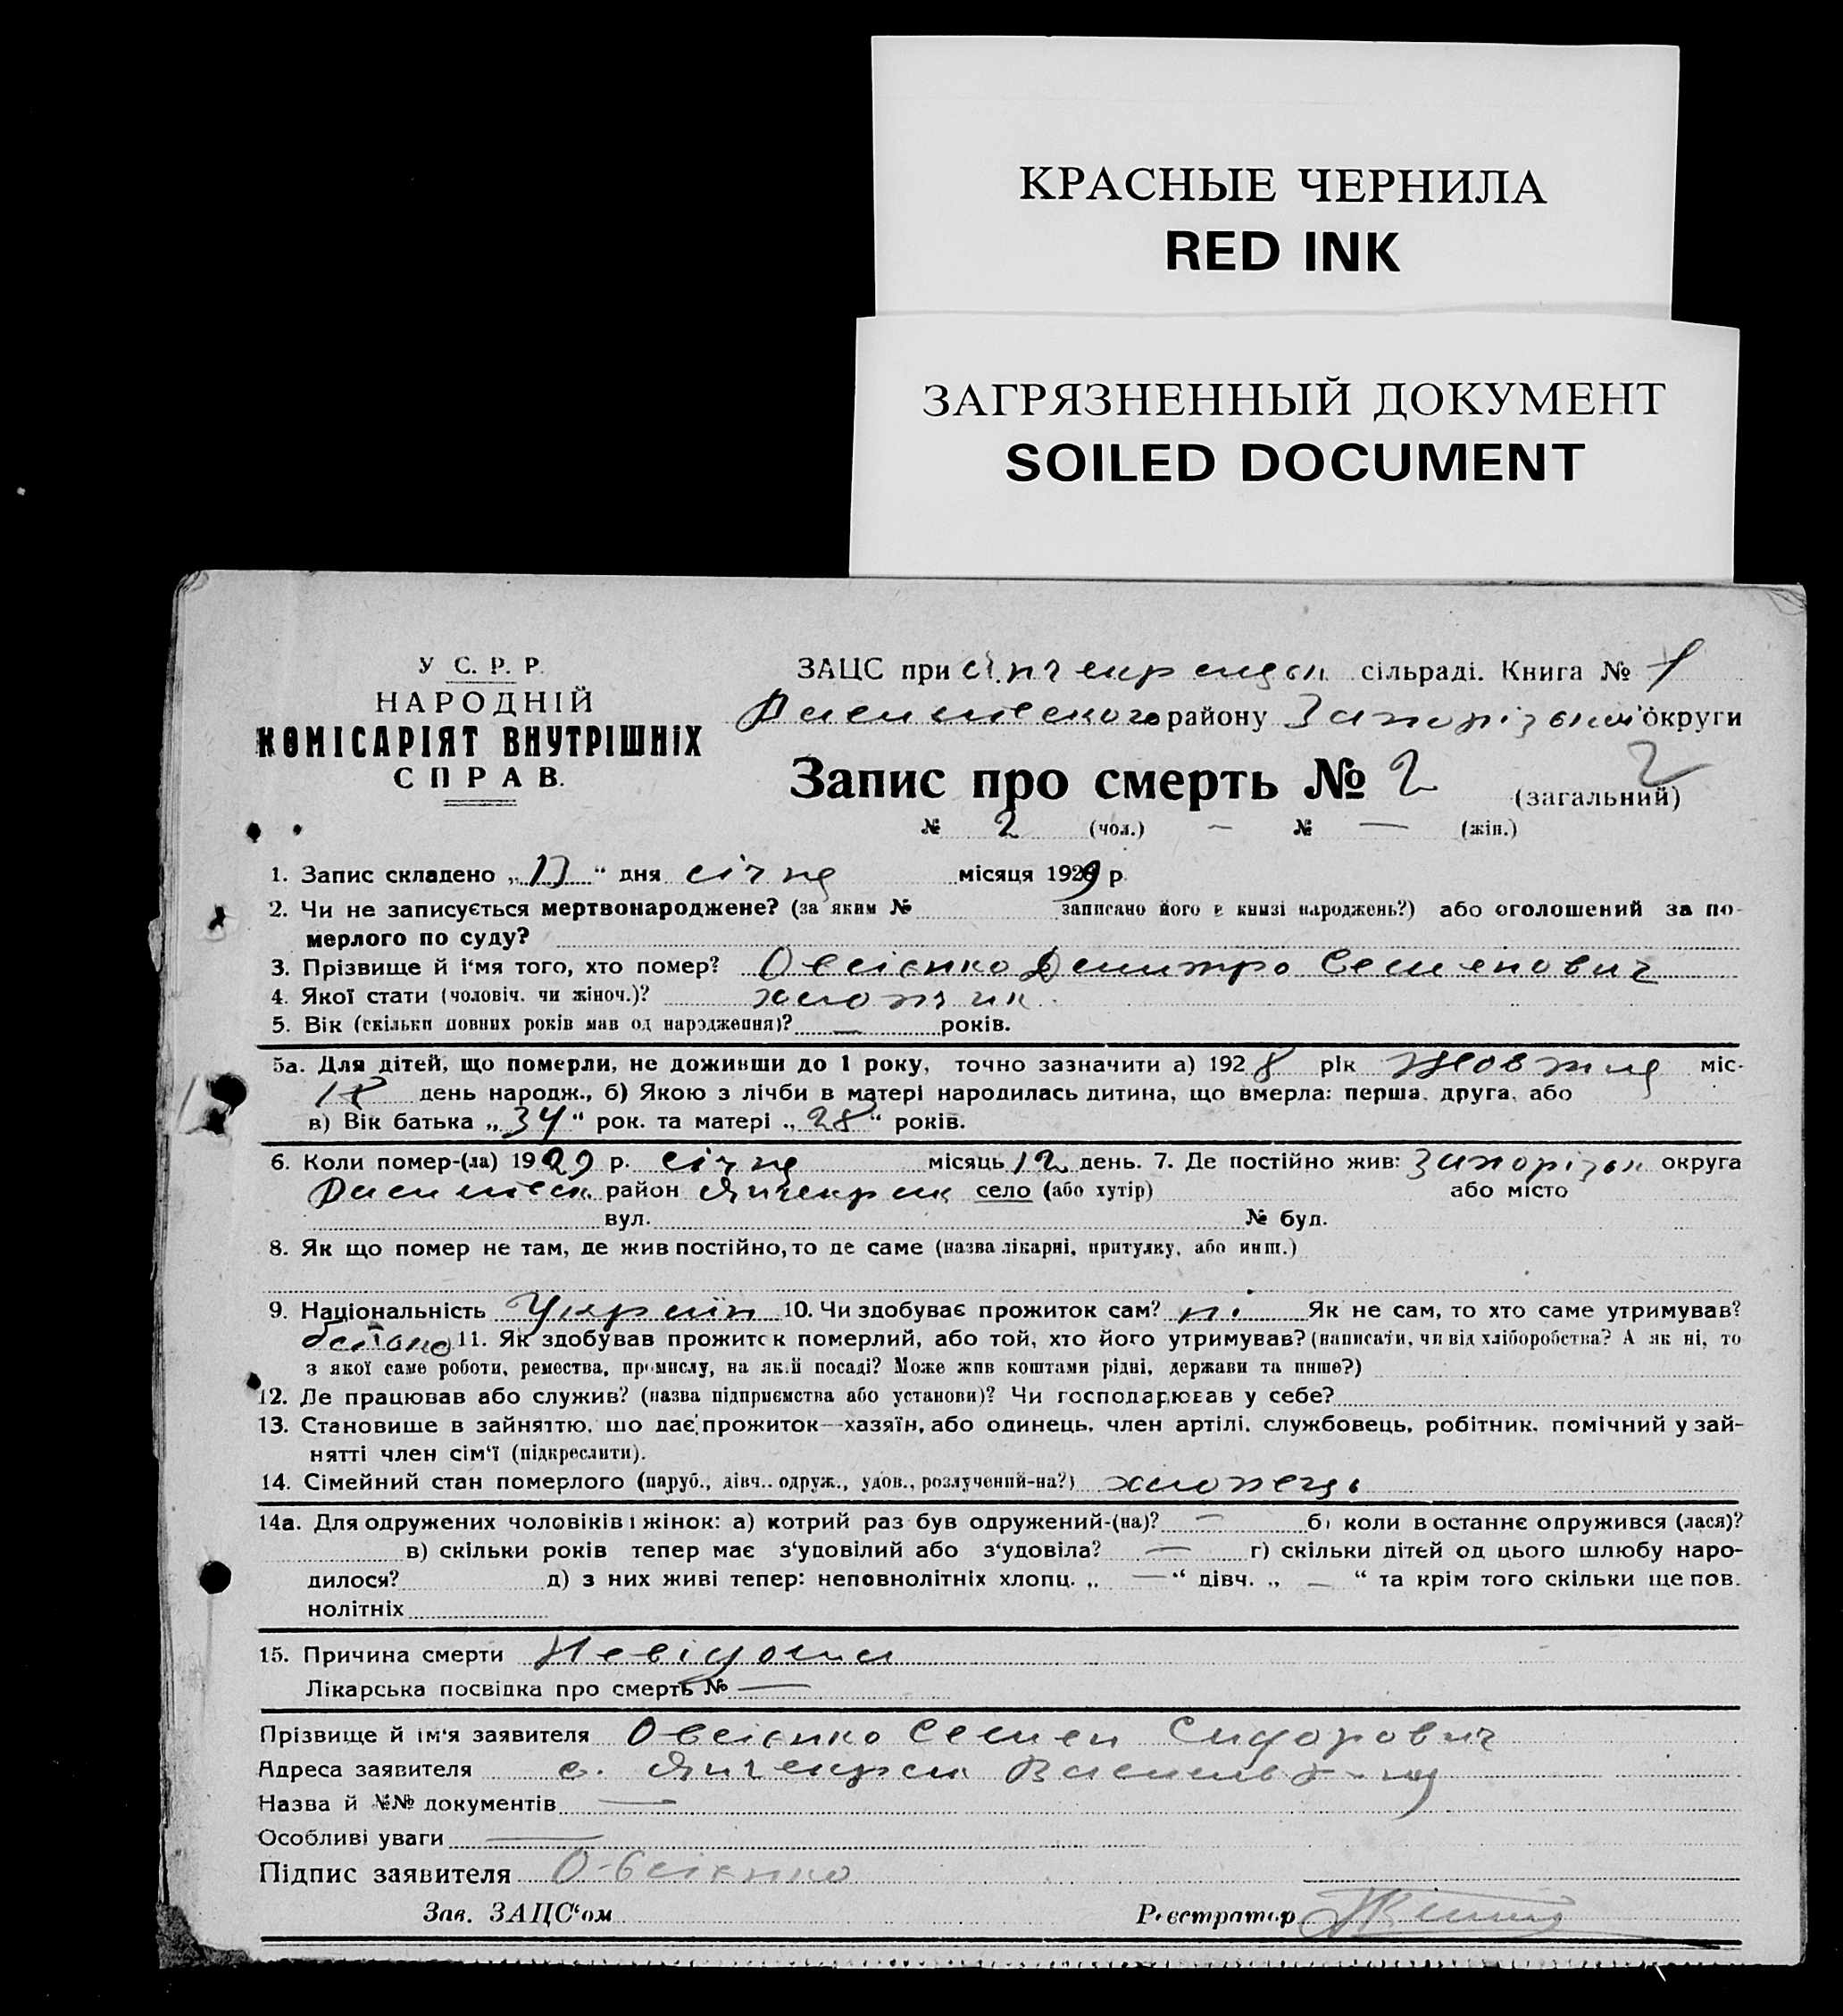 КРАСНЫЕ ЧЕРНИЛА
RED INK
ЗАГРЯЗНЕННЫЙ ДОКУМЕНТ
SOILED DOCUMENT
У С. Р. Р.
НАРОДНІЙ
КОМІСАРІЯТ ВНУТРІШНІХ
СПРАВ.
ЗАЦС при сільраді. Книга № 1
Василівського району Запорізької округи
Запис про смерть № 2 2 (загальний)
№ 2 (чол.) — № — (жін.)
1. Запис складено „ “ дня січня місяця 1929 р.
2. Чи не записується мертвонароджене? (за яким № записано його в книзі народжень?) або оголошений за по-
мерлого по суду?
3. Прізвище й і‘мя того, хто помер? Овсієнко Дмитро Семенович
4. Якої стати (чоловіч. чи жіноч.)? хлопчик.
5. Вік (скільки повних років мав од народження)? — років.
5а. Для дітей, що померли, не доживши до 1 року, точно зазначити а) 1928 рік Жовтня міс-
день народж., б) Якою з лічби в матері народилась дитина, що вмерла: перша, друга, або
в) Вік батька „34“ рок. та матері „28“ років.
6. Коли помер-(ла) 1929 р. січня місяць 12 день. 7. Де постійно жив: Запорізьк округа
Василівськ район село (або хутір) або місто
вул. № буд.
8. Як що помер не там, де жив постійно, то де саме (назва лікарні, притулку, або инш.)
9. Національність Україн 10. Чи здобуває прожиток сам? ні Як не сам, то хто саме утримував?
батько 11. Як здобував прожиток померлий, або той, хто його утримував? (написати, чи від хліборобства? А як ні, то
з якої саме роботи, ремества, промислу, на якій посаді? Може жив коштами рідні, держави та инше?)
12. Де працював або служив? (назва підприємства або установи)? Чи господарював у себе?
13. Становище в зайняттю, що дає прожиток—хазяїн, або одинець, член артілі, службовець, робітник, помічний у зай-
нятті член сім‘ї (підкреслити).
14. Сімейний стан померлого (паруб., дівч.. одруж., удов., розлучений-на?) хлопець
14а. Для одружених чоловіків і жінок: а) котрий раз був одружений-(на)? — б) коли в останнє одружився (лася)?
в) скільки років тепер має з‘удовілий або з‘удовіла? — г) скільки дітей од цього шлюбу наро-
дилося? д) з них живі тепер: неповнолітніх хлопц. „ —“ дівч. „ — “ та крім того скільки ще пов.
нолітніх
15. Причина смерти Невідома
Лікарська посвідка про смерть № —
Прізвище й ім‘я заявителя Овсієнко Семен Сидорович
Адреса заявителя с.
Назва й №№ документів —
Особливі уваги —
Підпис заявителя Овсієнко
Зав. ЗАЦС‘ом Реєстратор